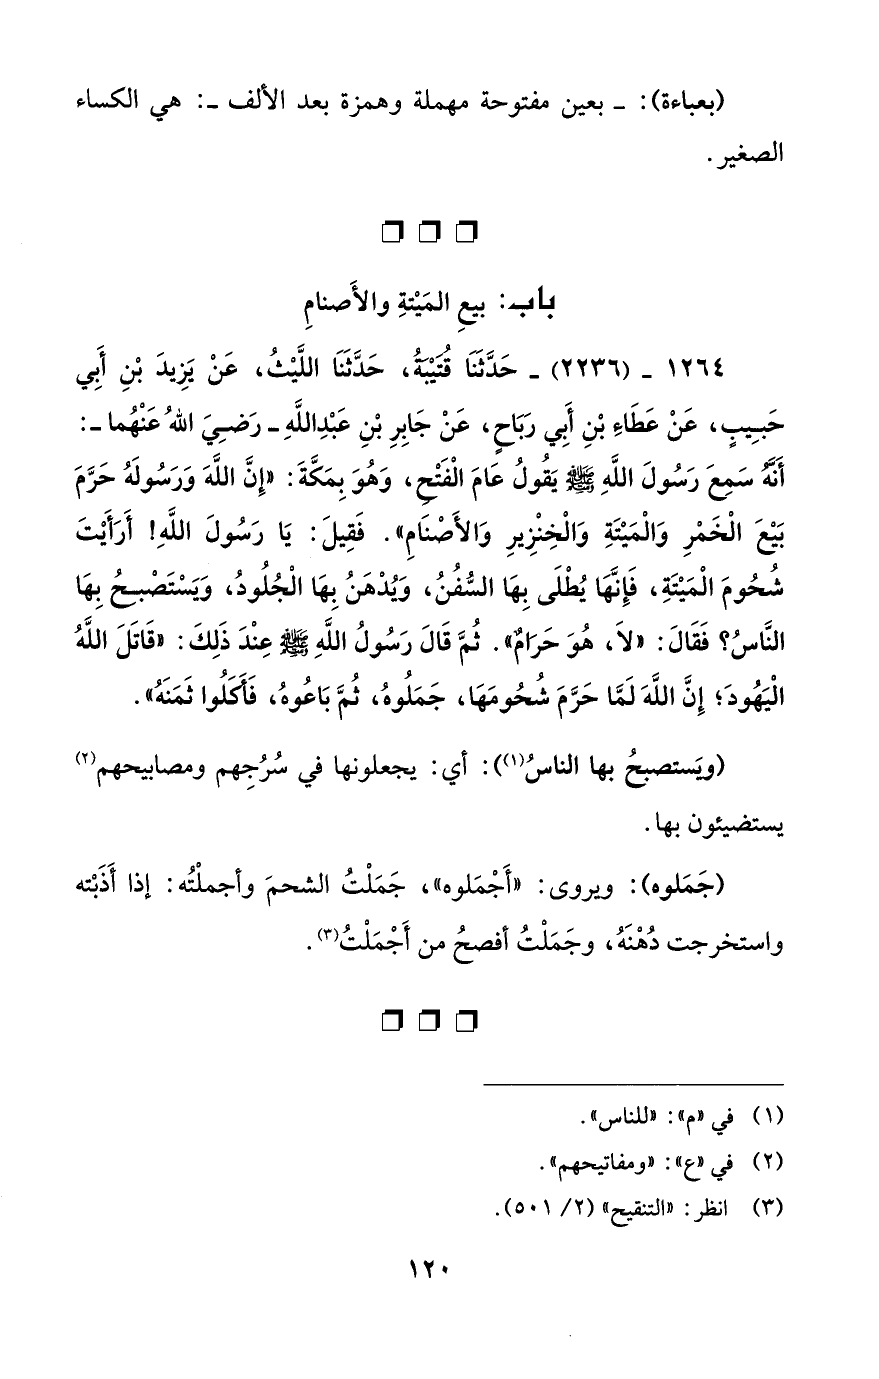 (بعباءة): ـ بعين مفتوحة مهملة وهمزة بعد الألف ـ: هي الكساء
الصغير.
❐ ❐ ❐
باب: بيعِ المَيْتةِ والأَصنامِ
١٢٦٤ ـ (٢٢٣٦) ـ حَدَّثَنَا قُتَيْبَةُ، حَدَّثَنَا اللَّيْثُ، عَنْ يَزِيدَ بْنِ أَبِي
حَبِيبٍ، عَنْ عَطَاءِ بْنِ أَبِي رَبَاحٍ، عَنْ جَابِرِ بْنِ عَبْدِاللَّهِ ـ رَضيَ اللهُ عَنْهُما ـ:
أَنَّهُ سَمِعَ رَسُولَ اللَّهِ ﷺ يَقُولُ عَامَ الْفَتْحِ، وَهُوَ بِمَكَّةَ: «إِنَّ اللَّهَ وَرَسُولَهُ حَرَّمَ
بَيْعَ الْخَمْرِ وَالْمَيْتَةِ وَالْخِنْزِيرِ وَالأَصْنَامِ». فَقِيلَ: يَا رَسُولَ اللَّهِ! أَرَأَيْتَ
شُحُومَ الْمَيْتَةِ، فَإِنَّهَا يُطْلَى بِهَا السُّفُنُ، وَيُدْهَنُ بِهَا الْجُلُودُ، وَيَسْتَصْبِحُ بِهَا
النَّاسُ؟ فَقَالَ: «لاَ، هُوَ حَرَامٌ». ثُمَّ قَالَ رَسُولُ اللَّهِ ﷺ عِنْدَ ذَلِكَ: «قَاتَلَ اللَّهُ
الْيَهُودَ؛ إِنَّ اللَّهَ لَمَّا حَرَّمَ شُحُومَهَا، جَمَلُوهُ، ثُمَّ بَاعُوهُ، فَأَكَلُوا ثَمَنَهُ».
(ويَستصبحُ بها الناسُ(١)): أي: يجعلونها في سُرُجِهم ومصابيحهم(٢)
يستضيئون بها.
(جَمَلوه): ويروى: «أَجْمَلوه»، جَمَلْتُ الشحمَ وأجملْتُه: إذا أَذَبْته
واستخرجت دُهْنَهُ، وجَمَلْتُ أفصحُ من أَجْمَلْتُ(٣).
❐ ❐ ❐
(١) في «م»: «للناس».
(٢) في «ع»: «ومفاتيحهم».
(٣) انظر: «التنقيح» (٢/ ٥٠١).
١٢٠